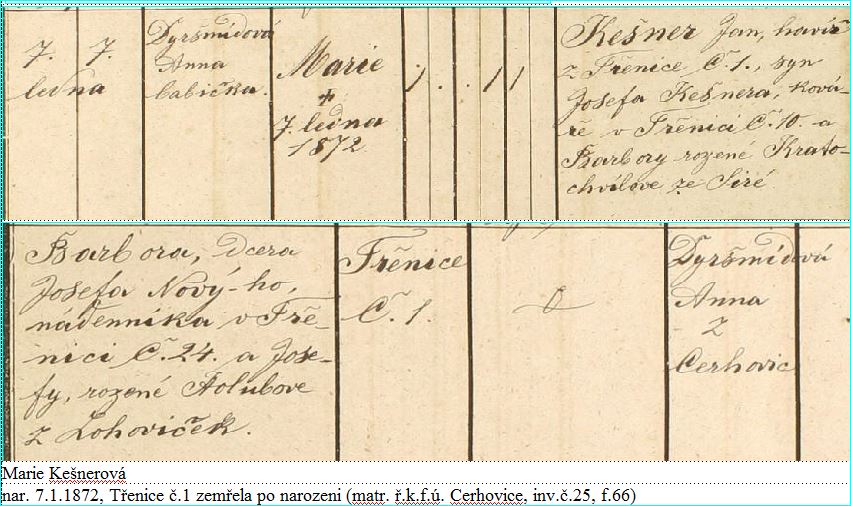 7. 7.
ledna
Dyršmidová
Anna
babička.
Marie
+
7. ledna
1872
1. . 1 1
Kešner Jan, havíř
z Třenice Č. 1., syn
Josefa Kešnera, ková-
ře v Třenici Č. 10. a
Barbory rozené Krato-
chvilove ze Siré
Barbora, dcera
Josefa Nový-ho,
nádenníka v Tře-
nici Č. 24. a Jose-
fy, rozené Holubove
z Lohoviček.
Třenice
Č. 1.
Dyršmídová
Anna
z
Cerhovic
Marie Kešnerová
nar. 7.1.1872, Třenice č.1 zemřela po narozeni (matr. ř.k.f.ú. Cerhovice, inv.č.25, f.66)